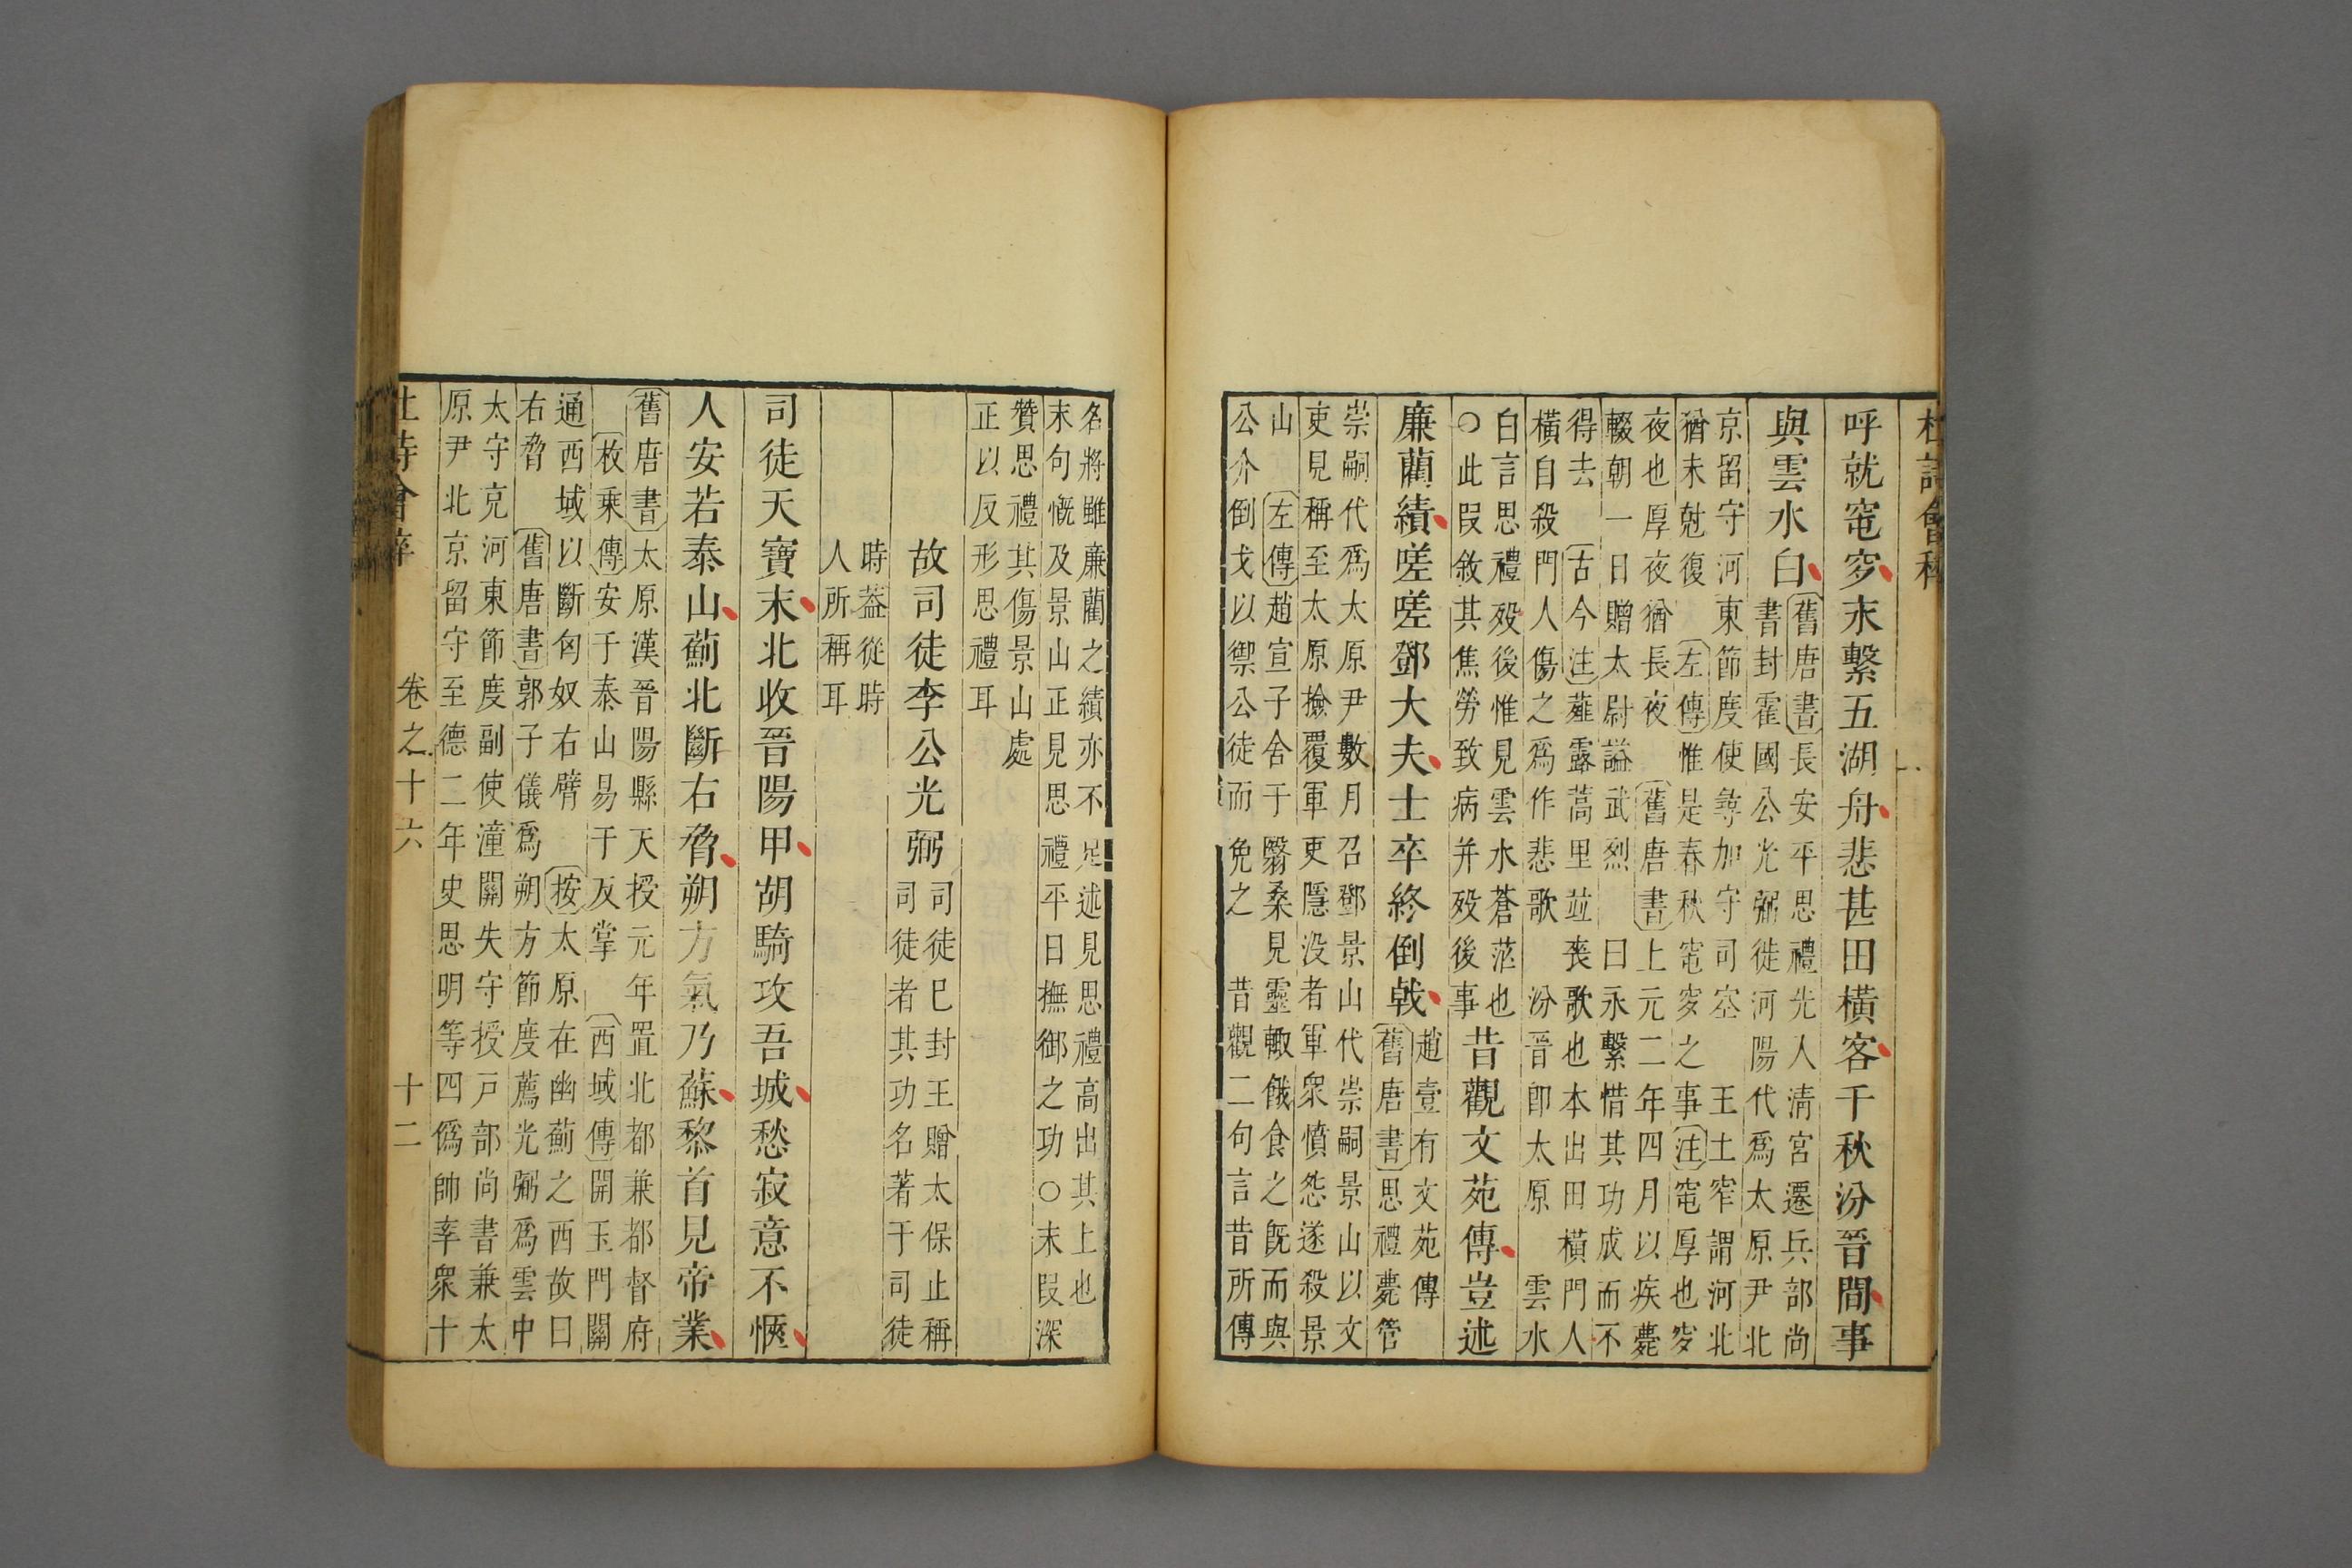 呼就窀穸未繫五湖舟悲甚田橫客千秋汾晉間事
與雲水白
舊唐書長安平思禮先入淸宮遷兵部尚
書封霍國公光弼徙河陽代爲太原尹北
京留守河東節度使尋加守司空　王土窄謂河北
猶未尅復　左傳惟是春秋窀穸之事注窀厚也穸
夜也厚夜猶長夜　舊唐書上元二年四月以疾薨
輟朝一日贈太尉謚武烈　曰永繫惜其功成而不
得去　古今注薤露蒿里竝喪歌也本出田橫門人
橫自殺門人傷之爲作悲歌　汾晉卽太原　雲水
白言思禮殁後惟見雲水蒼茫也
○此段敘其焦勞致病并殁後事
昔觀文苑傳豈述
廉藺績嗟嗟鄧大夫士卒終倒戟
趙壹有文苑傳
舊唐書思禮薨管
崇嗣代爲太原尹數月召鄧景山代崇嗣景山以文
吏見稱至太原撿覆軍吏隱没者軍衆憤怨遂殺景
山　左傳趙宣子舍于翳桑見靈輒餓食之旣而與
公介倒戈以禦公徒而免之　昔觀二句言昔所傳
名將雖廉藺之績亦不足述見思禮高出其上也
末句慨及景山正見思禮平日撫御之功○末段深
贊思禮其傷景山處
正以反形思禮耳
故司徒李公光弼
司徒已封王贈太保止稱
司徒者其功名著于司徒
時葢從時
人所稱耳
司徒天寶末北收晉陽甲胡騎攻吾城愁寂意不愜
人安若泰山薊北斷右脅朔方氣乃蘇黎首見帝業
舊唐書太原漢晉陽縣天授元年置北都兼都督府
枚乗傳安于泰山易于反掌　西域傳開玉門關
通西域以斷匈奴右臂　按太原在幽薊之西故曰
右脅　舊唐書郭子儀爲朔方節度薦光弼爲雲中
太守充河東節度副使潼關失守授戸部尚書兼太
原尹北京留守至德二年史思明等四僞帥率衆十
卷之十六　十二